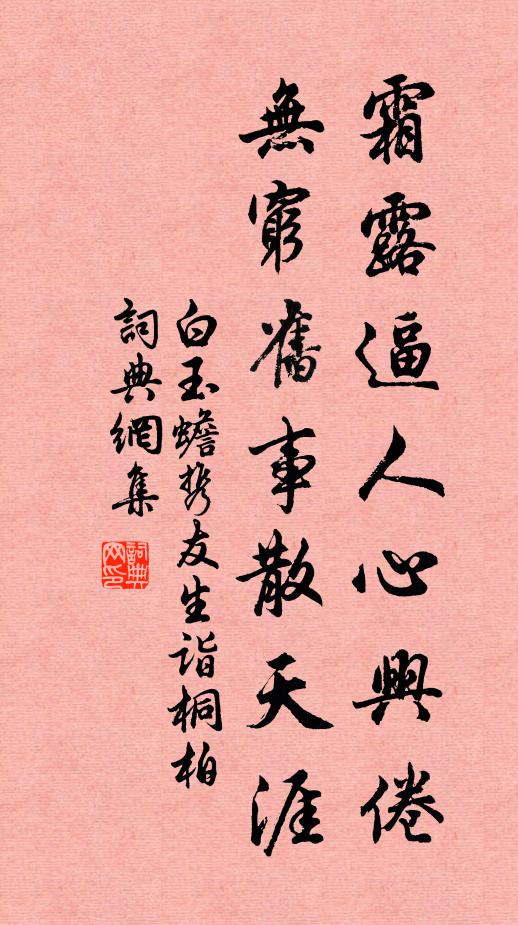 霜露逼人心興倦
無窮舊事散天涯
白玉蟾携友生詣桐柏
詞典網集
詞典網印